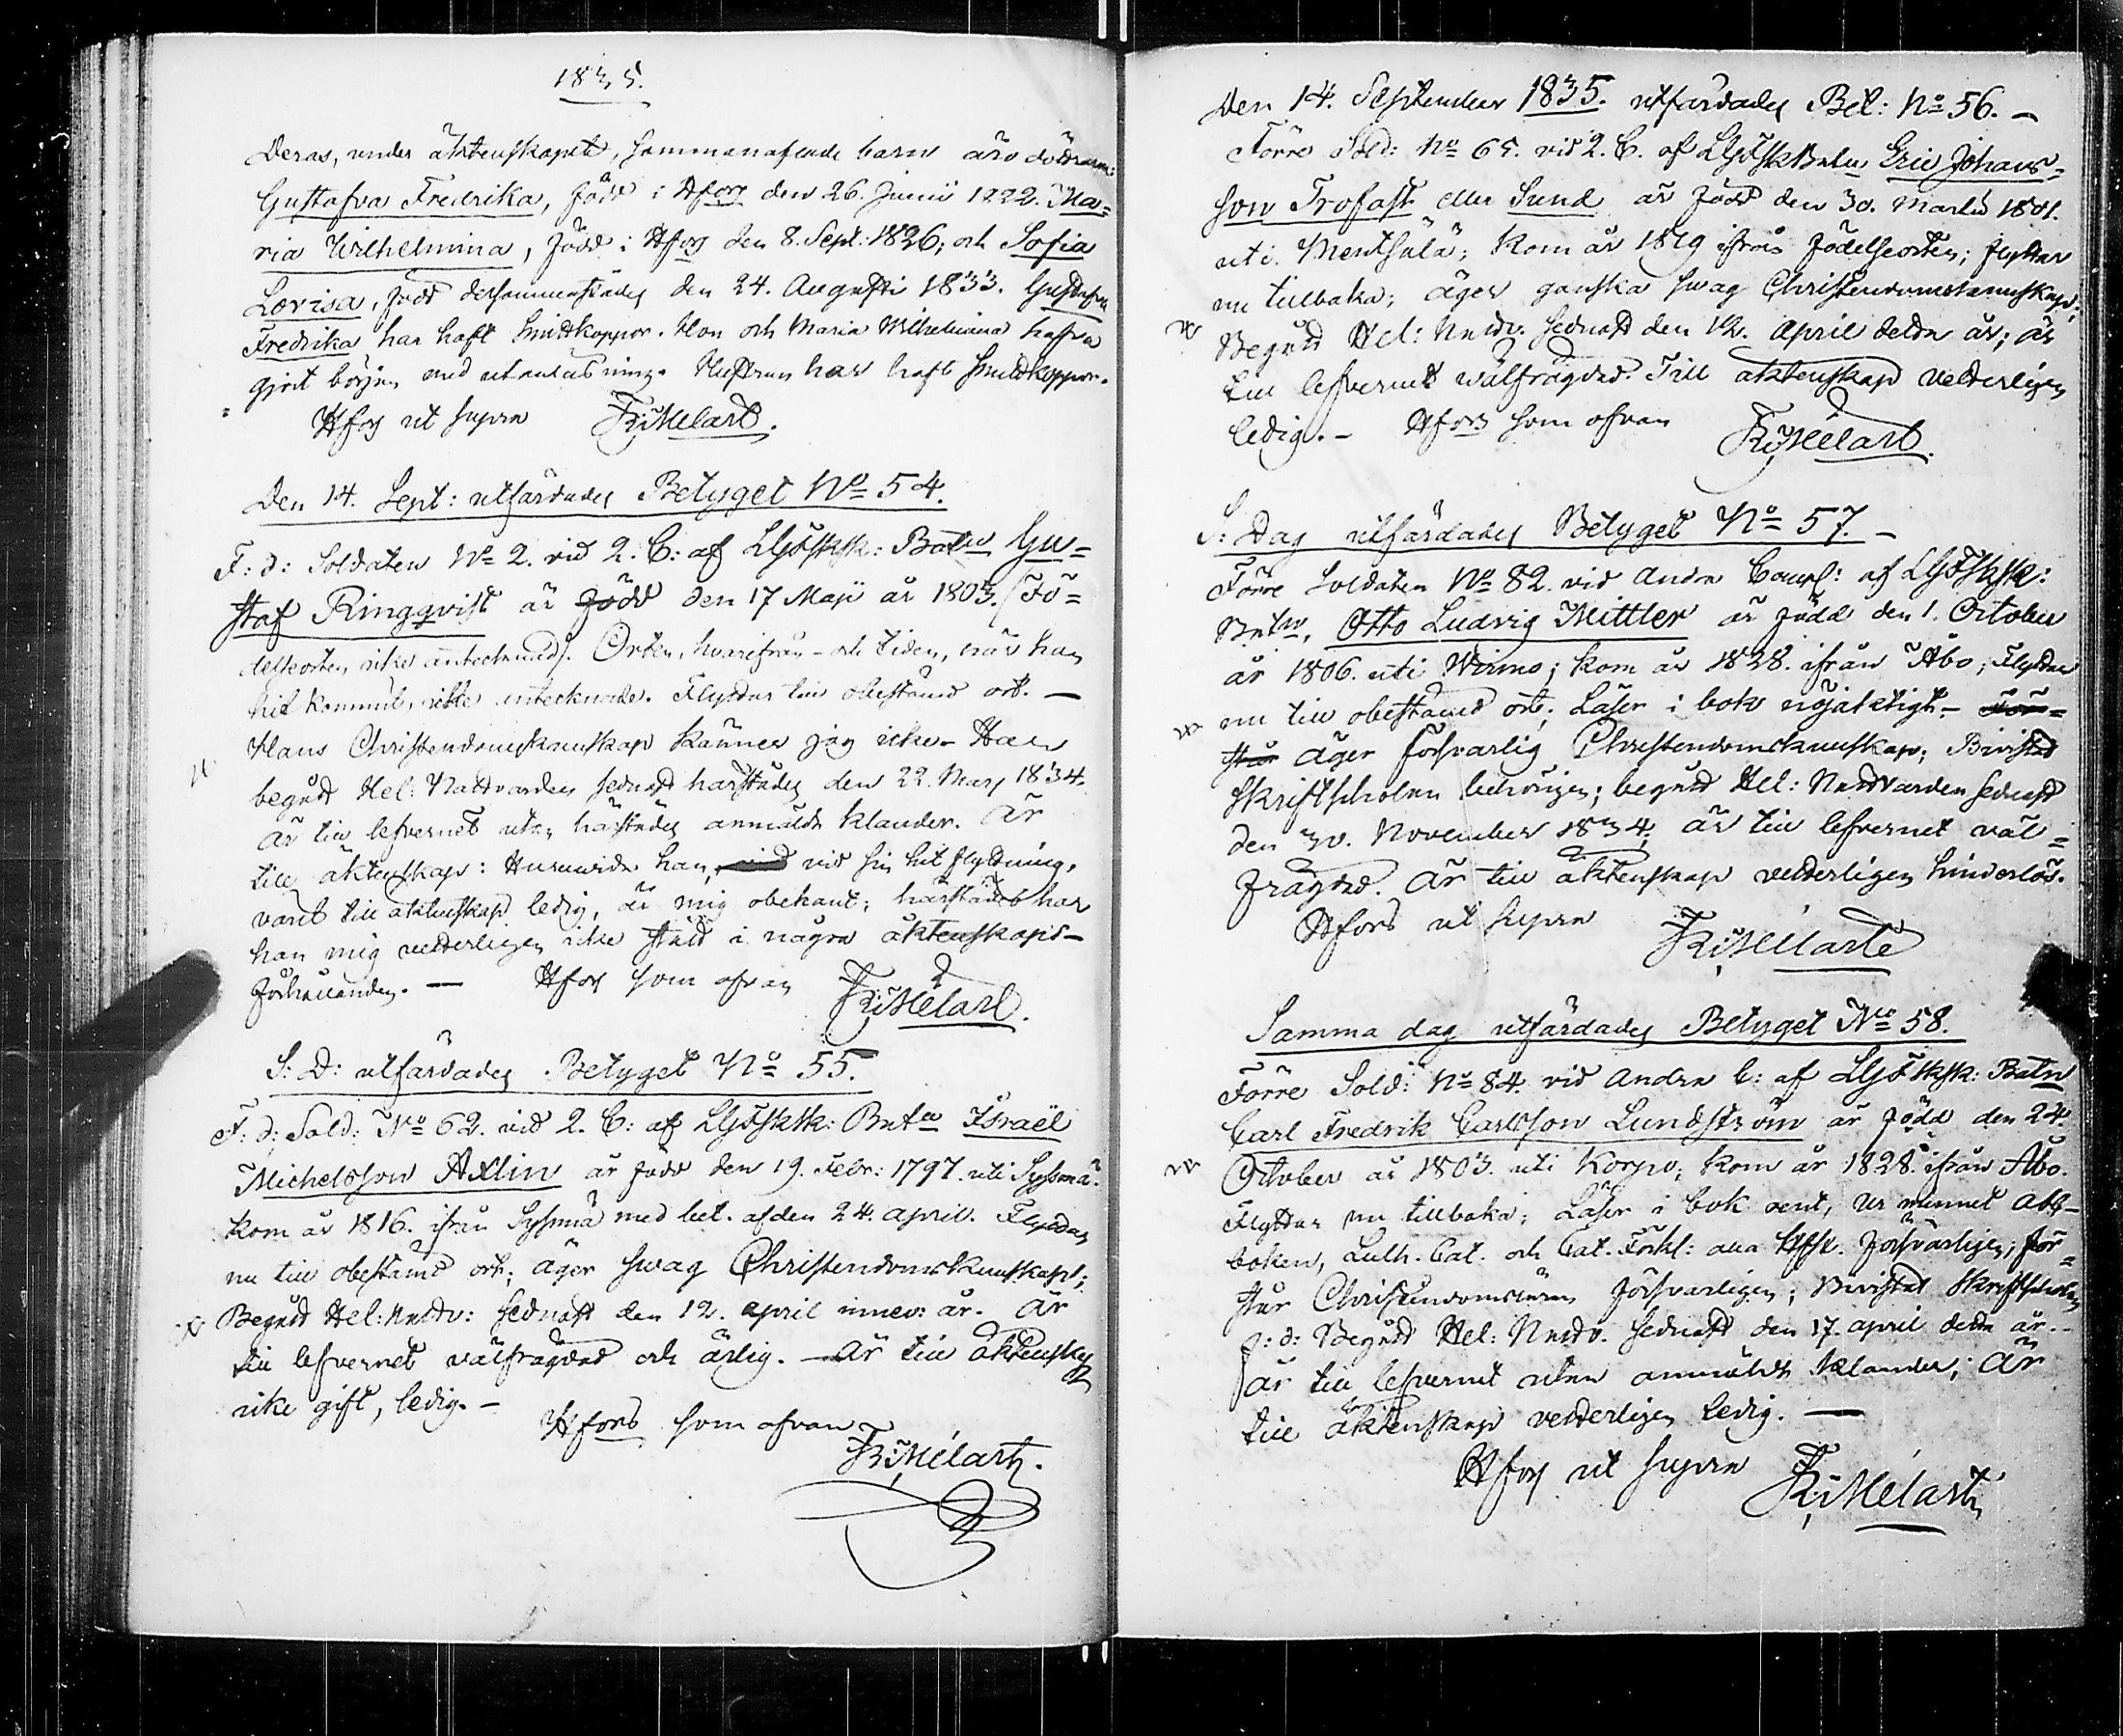 1835.
Deras, under äktenskapet, sammanaflade barn äro döttrarne:
Gustafva Fredrika, född i Hfors den 26. Junii 1822. Ma-
ria Wilhelmina, född i Hfors den 8. Sept: 1826; och Sofia
Lovisa, född dersammastädes den 24. Augusti 1833. Gustafva
Fredrika har haft Smittkoppor. Hon och Maria Wilhelmina hafva
gjort början med utanläsning. Hustrun har haft smittkoppor.
Hfors ut supra FriMelart.
Den 14. Sept: utfärdades Betyget No 54.
F: d: Soldaten No 2. vid 2. C: af LGdSkSk: Batn Gu-
staf Ringqvist är född den 17 Maji år 1803. (Fö-
delseorten icke antecknad). Orten, hvarifrån - och tiden, när han
hit kommit, icke antecknade. Flyttar till obestämd ort. —
Hans Christendomskunskap känner jag icke. Han
begått Hel: Nattvarden sednast härstädes den 22. Mars 1834.
Är till lefvernet utan härstädes anmäldt klander. Är
till äktenskap: Huruvida han, vid sin hit flyttning,
varit till äktenskap ledig, är mig obekant; härstädes har
han mig vetterligen icke stått i några äktenskaps-
förhållanden. — Hfors som ofvan FriMelart.
S: D: utfärdades Betyget No 55.
F: d: Sold: No 62. vid 2. C: af LGdSkSk: Batn Israël
Michelsson Axlin är född den 19. Febr: 1797. uti Syssmä.
Kom år 1816. ifrån Sysmä med bet. af den 24. April. Flyttar
nu till obestämd ort; äger swag Christendomskunskap;
Begått Hel: Nattv: sednast den 12. April innev: år. Är
till lefvernet välfrägdad och ärlig. — Är till äktenskap
icke gift, ledig. —
Hfors som ofvan
FriMelart.
Den 14. September 1835. utfärdades Bet: No 56. —
Förre Sold: No 65. vid 2. C. af LGdSkBatn Eric Johans-
son Trofast eller Sund är född den 30. Martii 1801.
uti Mentsälä; Kom år 1819 ifrån födelseorten; flyttar
nu tillbaka; äger ganska swag Christendomskunskap;
Begått Hel: Nattv. sednast den 12. April detta år; är
till lefvernet wälfrägdad. Till äktenskap vetterligen
ledig. — Hfors som ofvan FriMelart.
S: Dag utfärdades Betyget No 57. —
Förre Soldaten No 82. vid Andra Comp: af LGdSkSk:
Batn, Otto Ludvig Mittler är född den 1. October
år 1806. uti Wirmo; Kom år 1828. ifrån Åbo; Flyttar
nu till obestämd ort; Läser i bok nöjaktigt. För-
står Äger försvarlig Christendomskunskap; Bivistat
Skriftskolan behörigen; begått Hel: Nattvarden sednast
den 30. November 1834, är till lefvernet väl-
frägdad. Är till äktenskap vetterligen hinderlös.
Hfors ut supra FriMelart
Samma dag utfärdades Betyget No 58.
Förre Sold: No 84. vid Andra C: af LGdSkSk: Batn
Carl Fredrik Carlsson Lundström är född den 24.
October år 1803. uti Korpo; Kom år 1828. ifrån Åbo.
Flyttar nu tillbaka; Läser i bok rent, ur minnet Abc-
boken, Luth. Cat. och Cat. Förkl: försvarligen; för-
står Christendomsläran försvarligen; Bivistat Skriftskolan
f: d: Begått Hel: Nattv. sednast den 17. April detta år. -
är till lefvernet utan anmäldt klander; Är
till äktenskap vetterligen ledig. —
Hfors ut supra FriMelart